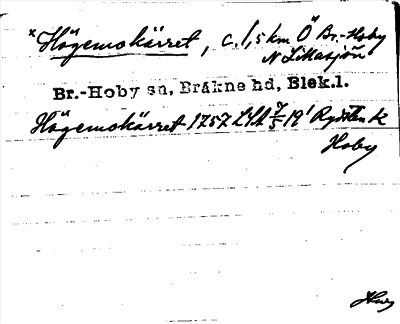 x Högemokärret, c. 1,5 km Ö Br.-Hoby
N Likasjön
Br.-Hoby sn, Bräkne hd, Blek.l.
Högemokärret 1757 LSA 7/5 19'
Hoby